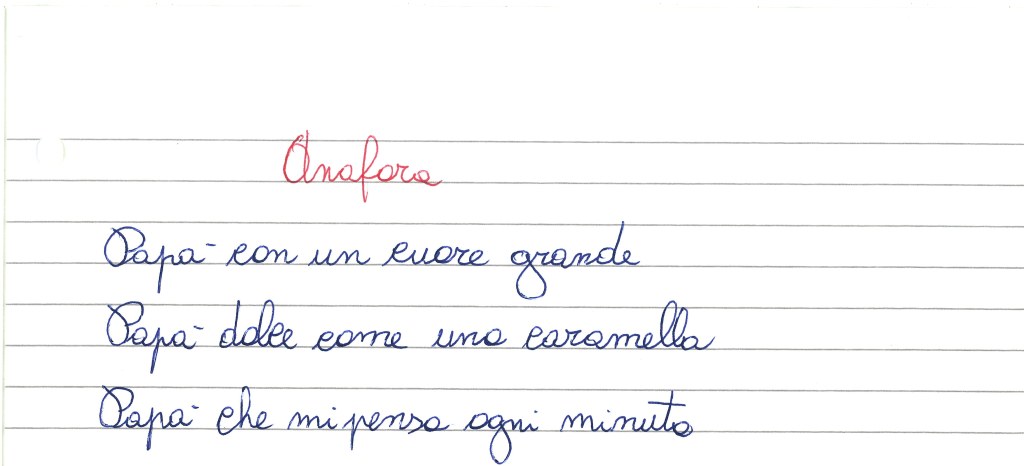 Anafora
Papà con un cuore grande
Papà dolce come una caramella
Papà che mi pensa ogni minuto